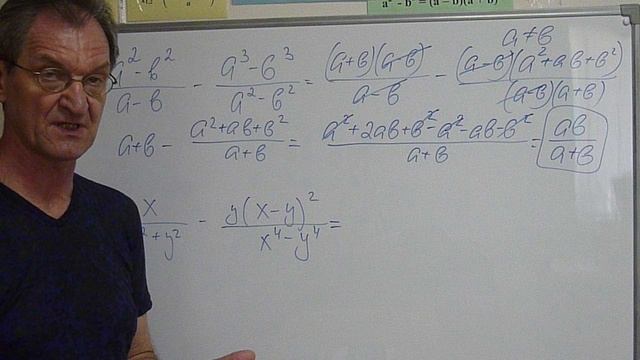 a² - b² = (a - b)(a + b)
a ≠ b
a² - b² / a - b - a³ - b³ / a² - b² = (a+b)(a-b) / a-b - (a-b)(a²+ab+b²) / (a-b)(a+b)
a+b - a²+ab+b² / a+b = a²+2ab+b²-a²-ab-b² / a+b = ab / a+b
x / ² + y² - y(x-y)² / x⁴-y⁴ =